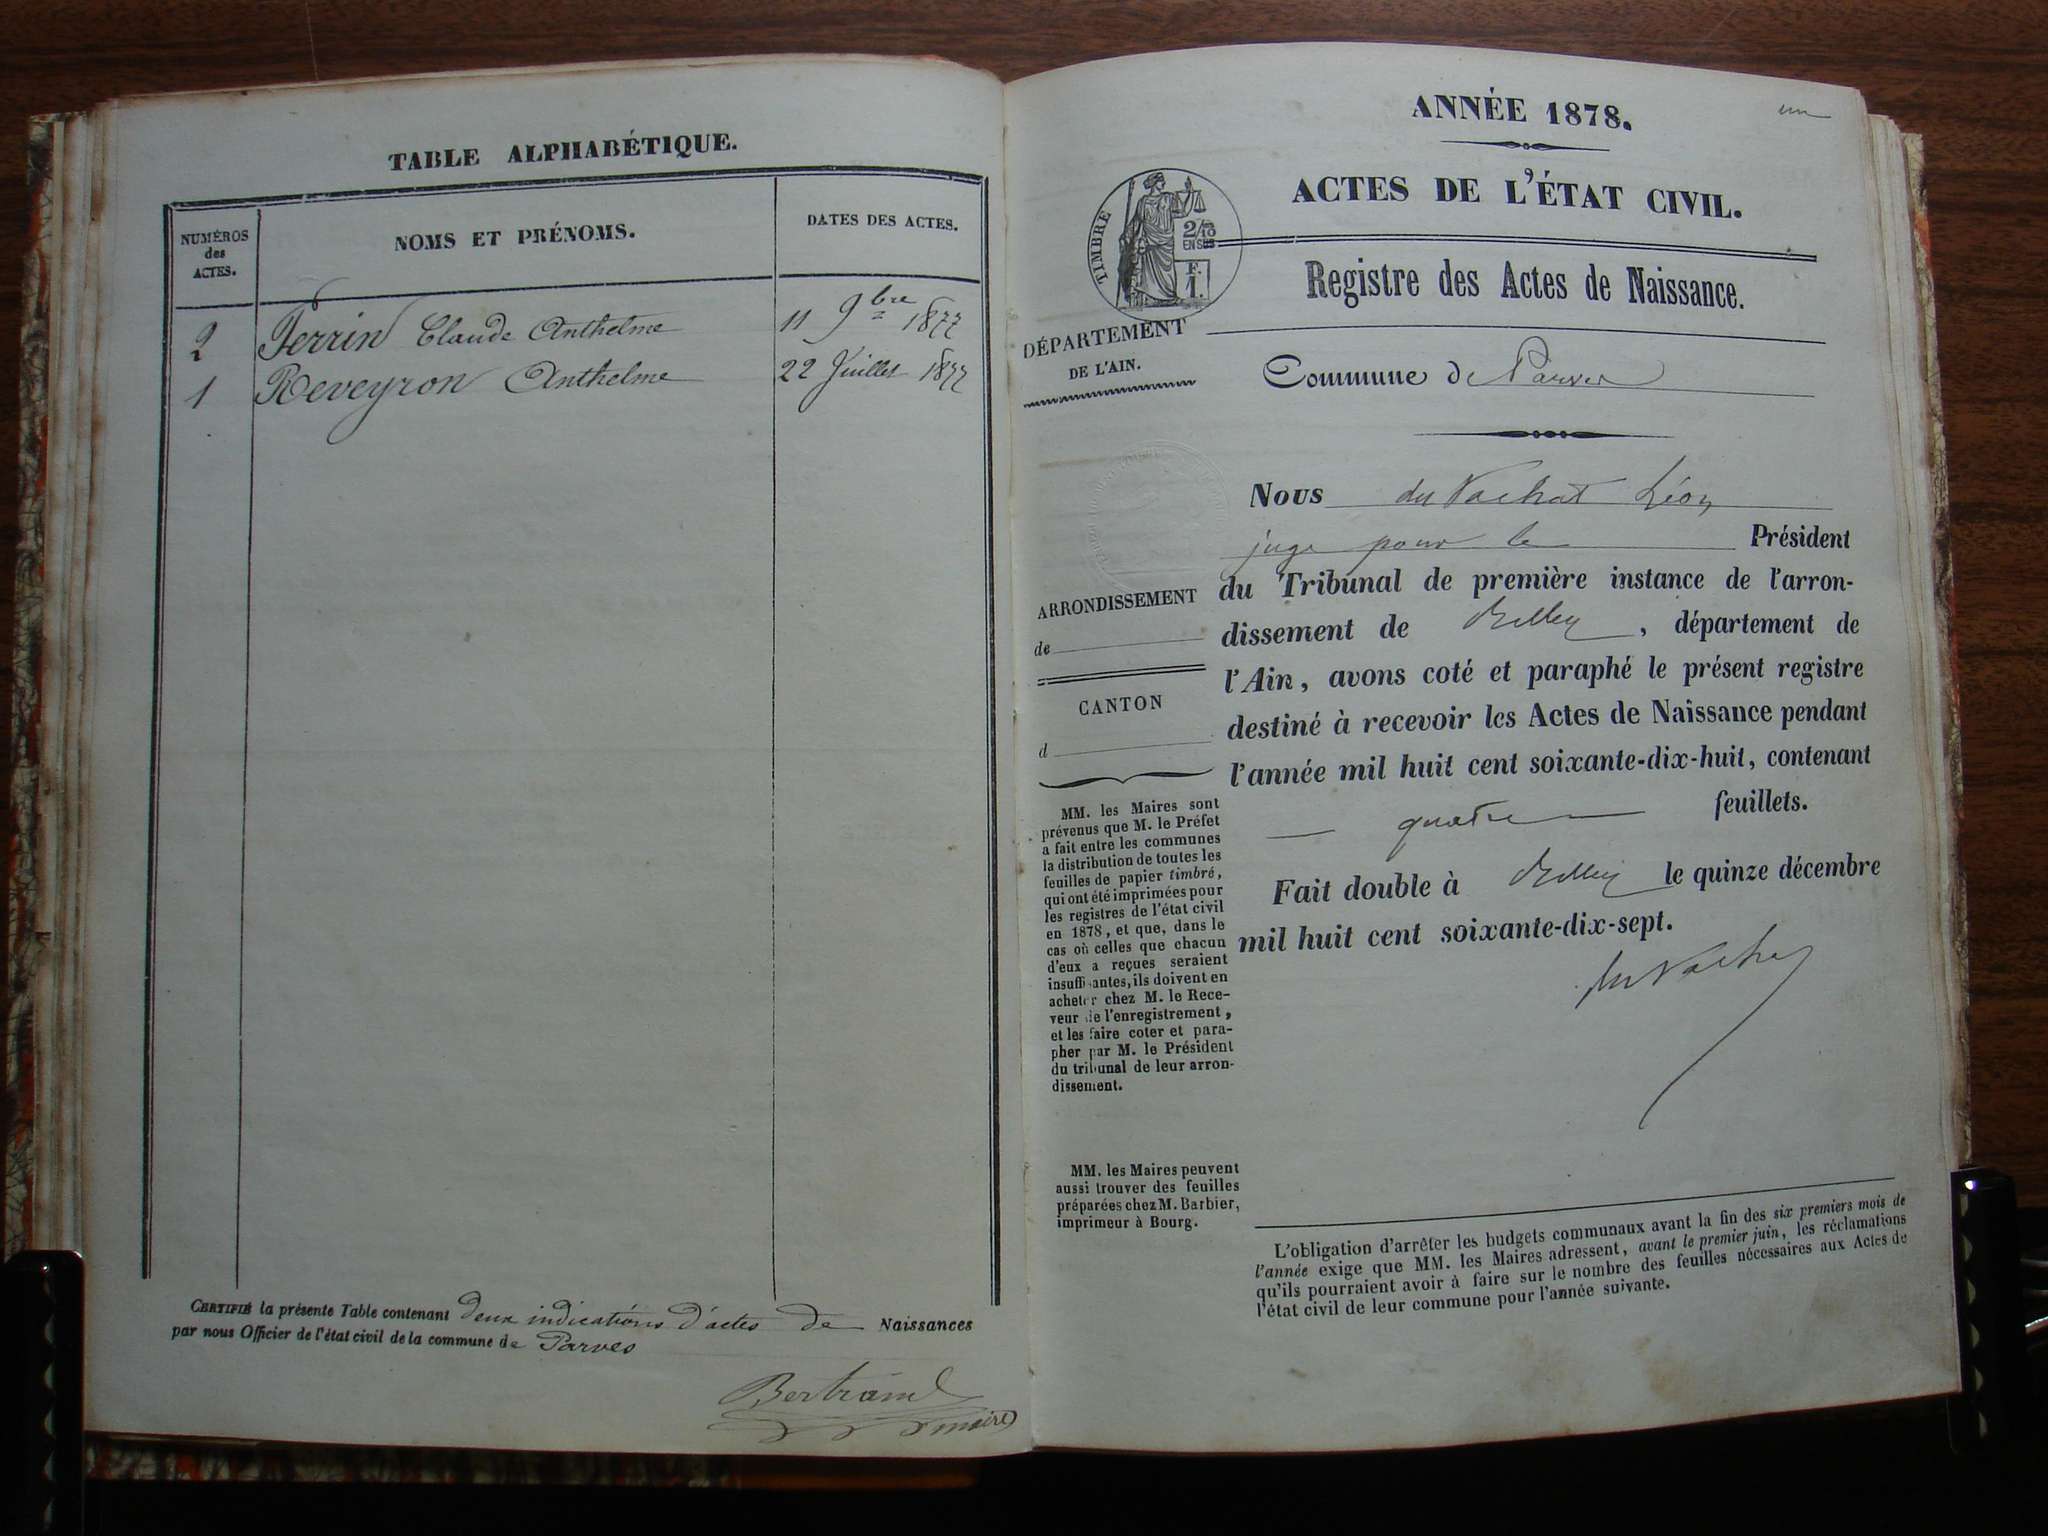 TABLE ALPHABÉTIQUE.
NUMÉROS
des
ACTES.
NOMS ET PRÉNOMS.
DATES DES ACTES.
2 Perrin Claude Anthelme 11 9bre 1877
1 Reveyron Anthelme 22 Juillet 1877
CERTIFIÉ la présente Table contenant deux indications d'actes de Naissances
par nous Officier de l'état civil de la commune de Parves
Bertrand
maire
un
ANNÉE 1878.
ACTES DE L'ÉTAT CIVIL.
TIMBRE
2/10
EN SUS
F.
1.
Registre des Actes de Naissance.
DÉPARTEMENT
DE L'AIN.
Commune de Parves
Nous du Vachat Léon
juge pour le Président
du Tribunal de première instance de l'arron-
dissement de Belley, département de
l'Ain, avons coté et paraphé le présent registre
destiné à recevoir les Actes de Naissance pendant
l'année mil huit cent soixante-dix-huit, contenant
quatre feuillets.
Fait double à Belley le quinze décembre
mil huit cent soixante-dix-sept.
du Vachat
ARRONDISSEMENT
de
CANTON
d
MM. les Maires sont
prévenus que M. le Préfet
a fait entre les communes
la distribution de toutes les
feuilles de papier timbré,
qui ont été imprimées pour
les registres de l'état civil
en 1878, et que, dans le
cas où celles que chacun
d'eux a reçues seraient
insuffisantes, ils doivent en
acheter chez M. le Rece-
veur de l'enregistrement,
et les faire coter et para-
pher par M. le Président
du tribunal de leur arron-
dissement.
MM. les Maires peuvent
aussi trouver des feuilles
préparées chez M. Barbier,
imprimeur à Bourg.
L'obligation d'arrêter les budgets communaux avant la fin des six premiers mois de
l'année exige que MM. les Maires adressent, avant le premier juin, les réclamations
qu'ils pourraient avoir à faire sur le nombre des feuilles nécessaires aux Actes de
l'état civil de leur commune pour l'année suivante.